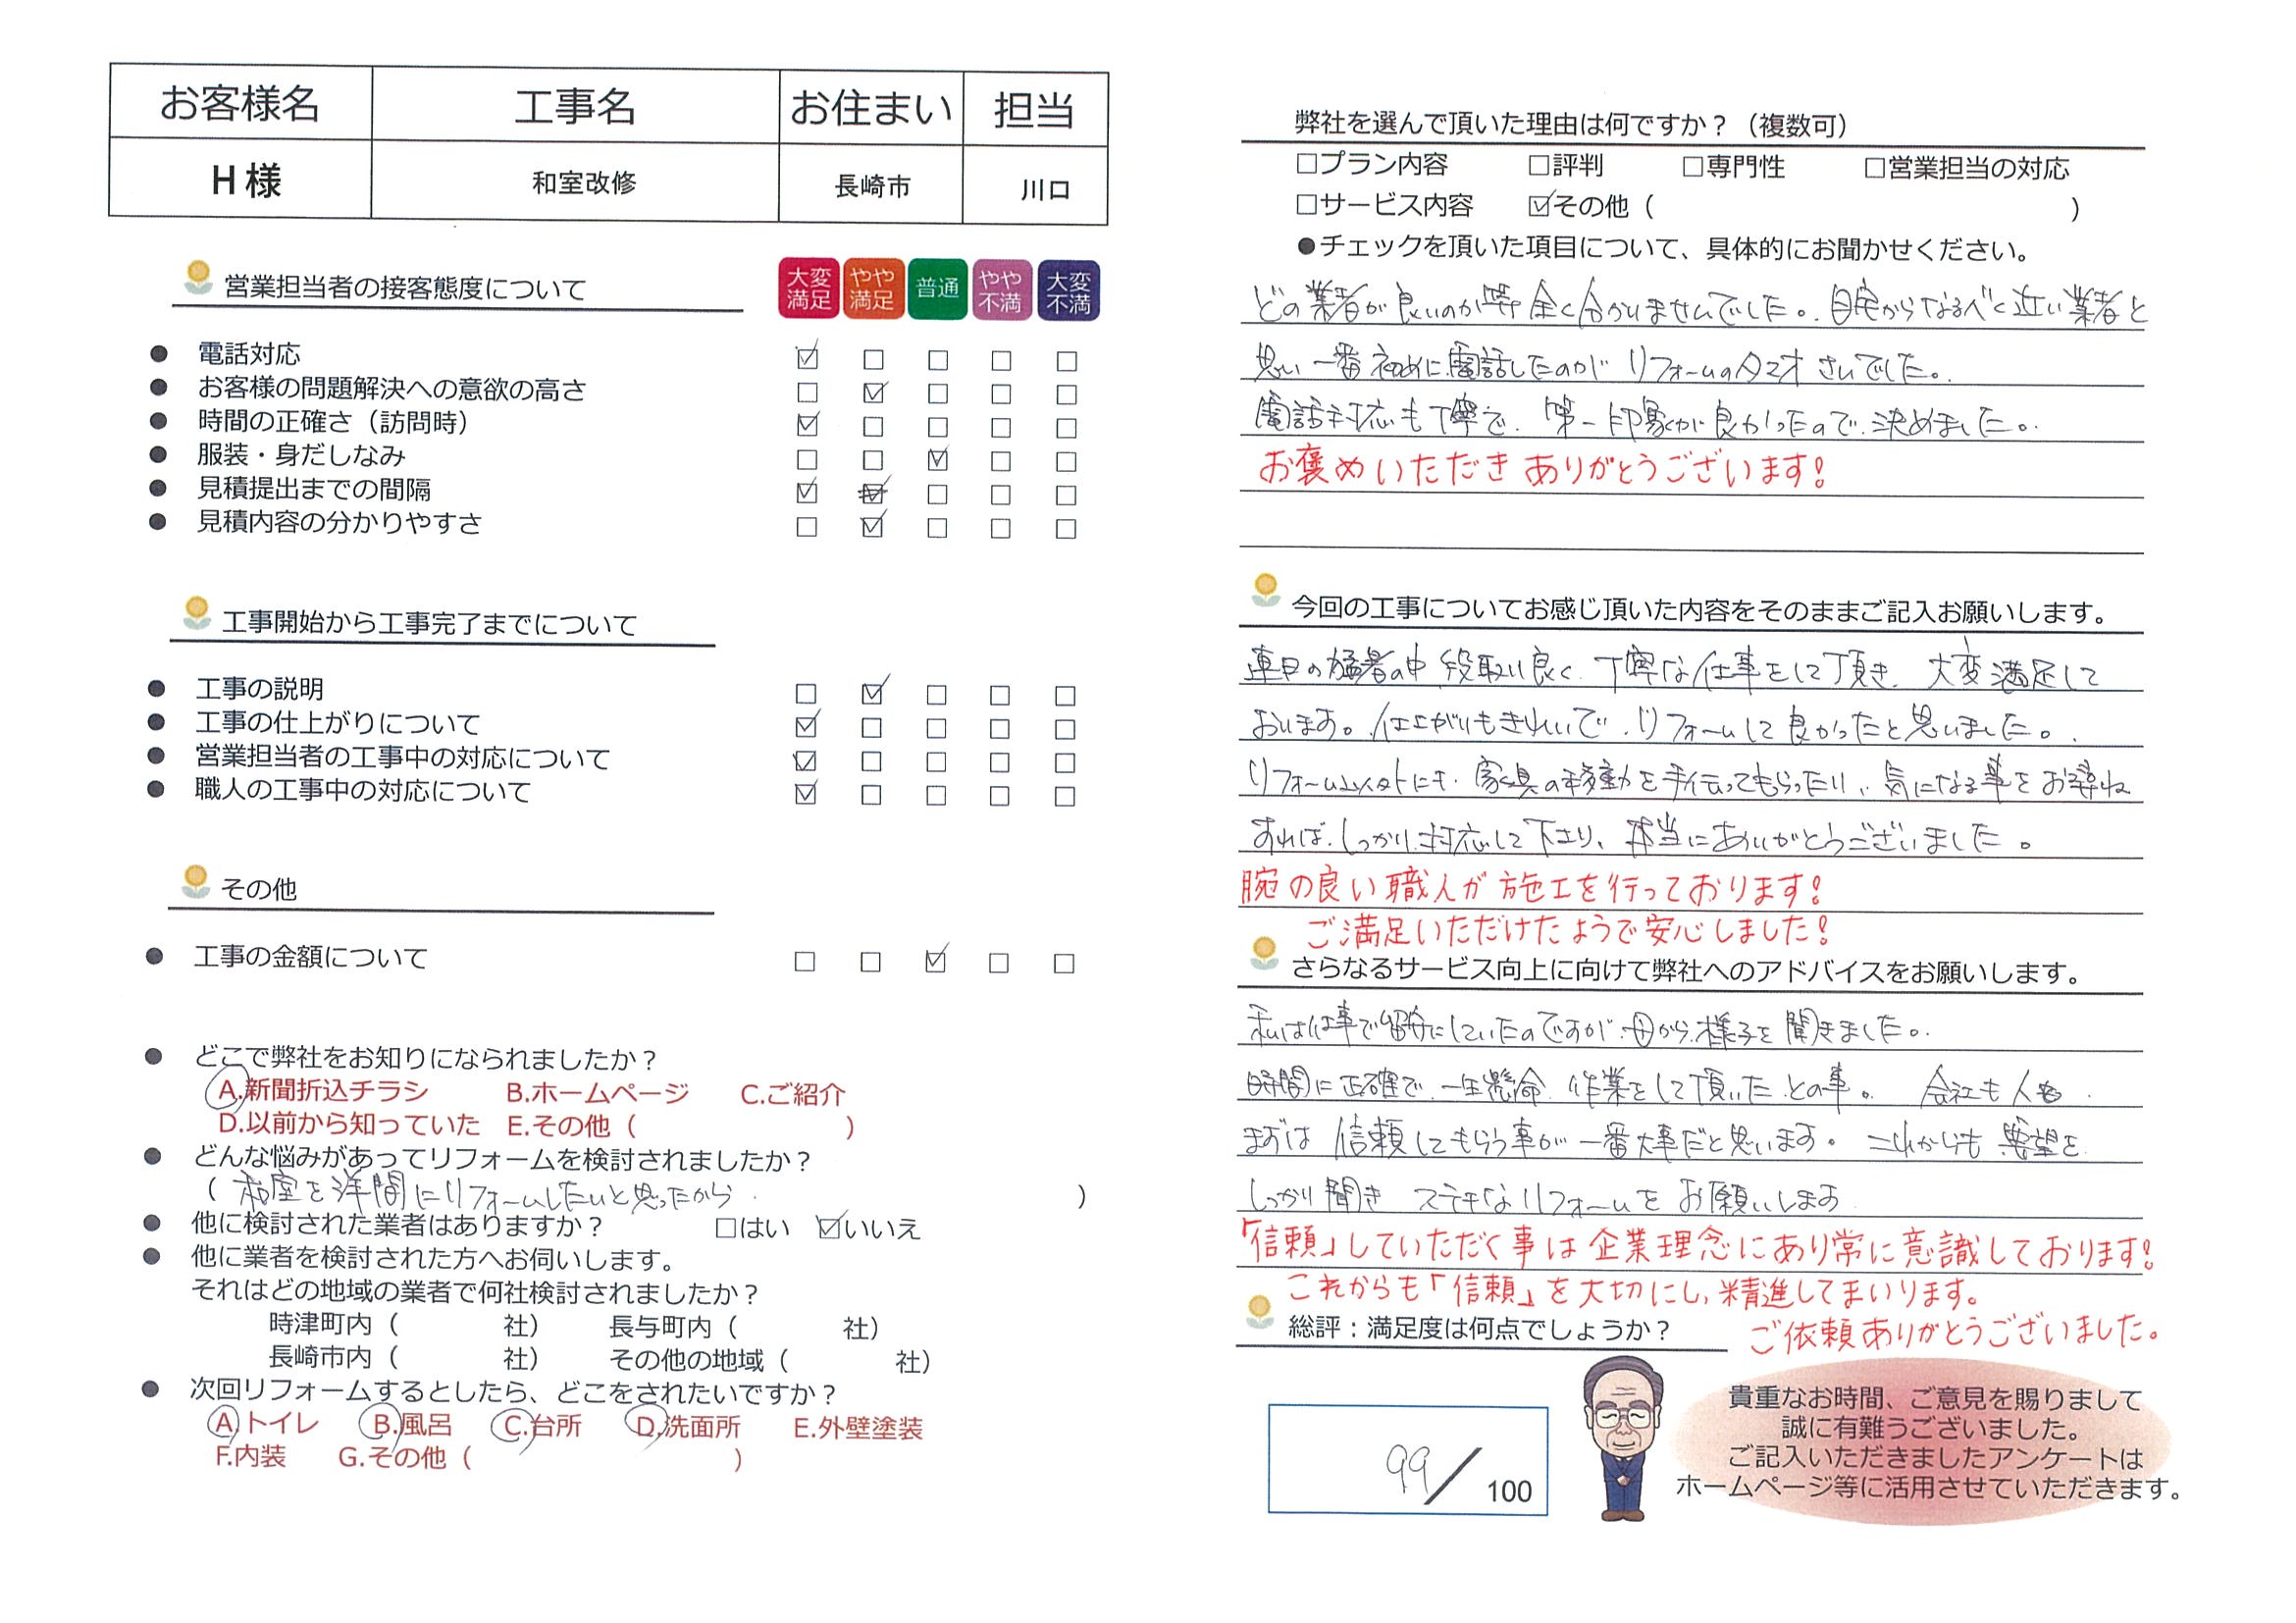 お客様名 工事名 お住まい 担当
H様 和室改修 長崎市 川口
営業担当者の接客態度について
大変満足 やや満足 普通 やや不満 大変不満
● 電話対応 ☑ □ □ □ □
● お客様の問題解決への意欲の高さ □ ☑ □ □ □
● 時間の正確さ（訪問時） ☑ □ □ □ □
● 服装・身だしなみ □ □ ☑ □ □
● 見積提出までの間隔 ☑ ☑ □ □ □
● 見積内容の分かりやすさ □ ☑ □ □ □
工事開始から工事完了までについて
● 工事の説明 □ ☑ □ □ □
● 工事の仕上がりについて ☑ □ □ □ □
● 営業担当者の工事中の対応について ☑ □ □ □ □
● 職人の工事中の対応について ☑ □ □ □ □
その他
● 工事の金額について □ □ ☑ □ □
● どこで弊社をお知りになられましたか？
A.新聞折込チラシ B.ホームページ C.ご紹介
D.以前から知っていた E.その他（ ）
● どんな悩みがあってリフォームを検討されましたか？
（ 和室を洋間にリフォームしたいと思ったから ）
● 他に検討された業者はありますか？ □はい ☑いいえ
● 他に業者を検討された方へお伺いします。
それはどの地域の業者で何社検討されましたか？
時津町内（ 社） 長与町内（ 社）
長崎市内（ 社） その他の地域（ 社）
● 次回リフォームするとしたら、どこをされたいですか？
A.トイレ B.風呂 C.台所 D.洗面所 E.外壁塗装
F.内装 G.その他（ ）
弊社を選んで頂いた理由は何ですか？（複数可）
□プラン内容 □評判 □専門性 □営業担当の対応
□サービス内容 ☑その他（ ）
●チェックを頂いた項目について、具体的にお聞かせください。
どの業者が良いのか等全く分かりませんでした。自宅からなるべく近い業者と
思い一番初めに電話したのがリフォームのタマオさんでした。
電話対応も丁寧で、第一印象が良かったので決めました。
お褒めいただきありがとうございます！
今回の工事についてお感じ頂いた内容をそのままご記入お願いします。
連日の猛暑の中段取り良く、丁寧な仕事をして頂き、大変満足して
おります。仕上がりもきれいで、リフォームして良かったと思いました。
リフォーム以外にも、家具の移動を手伝ってもらったり、気になる事をお尋ね
すれば、しっかり対応して下さり、本当にありがとうございました。
腕の良い職人が施工を行っております！
ご満足いただけたようで安心しました！
さらなるサービス向上に向けて弊社へのアドバイスをお願いします。
私は仕事で留守にしていたのですが、母から様子を聞きました。
時間に正確で一生懸命作業をして頂いたとの事。会社も人も
まずは信頼してもらう事が一番大事だと思います。これからも要望を
しっかり聞きステキなリフォームをお願いします
「信頼」していただく事は企業理念にあり常に意識しております！
これからも「信頼」を大切にし、精進してまいります。
総評：満足度は何点でしょうか？ ご依頼ありがとうございました。
99/100
貴重なお時間、ご意見を賜りまして
誠に有難うございました。
ご記入いただきましたアンケートは
ホームページ等に活用させていただきます。